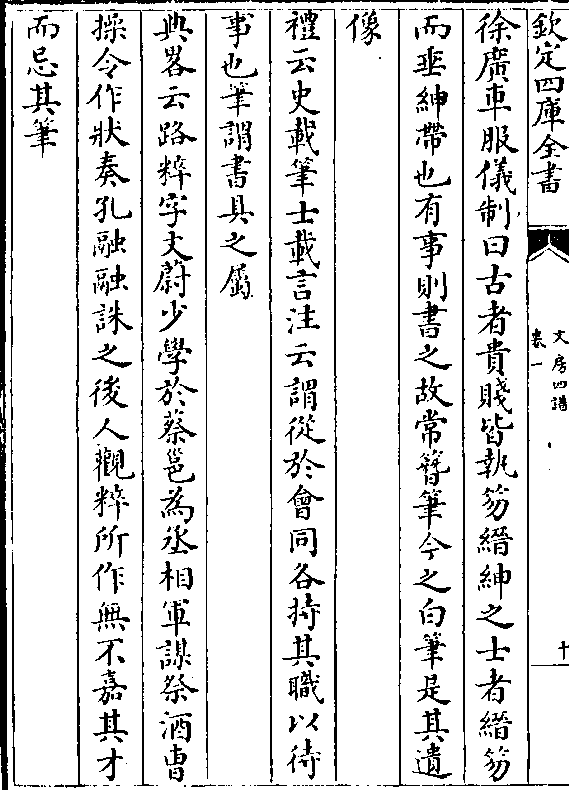 欽定四庫全書
文房四譜
卷一
十
徐廣車服儀制曰古者貴賤皆執笏縉紳之士者縉笏
而垂紳帶也有事則書之故常簪筆今之白筆是其遺
像
禮云史載筆士載言注云謂從於會同各持其職以待
事也筆謂書具之屬
典畧云路粹字文蔚少學於蔡邕為丞相軍謀祭酒曹
操令作狀奏孔融融誅之後人觀粹所作無不嘉其才
而忌其筆